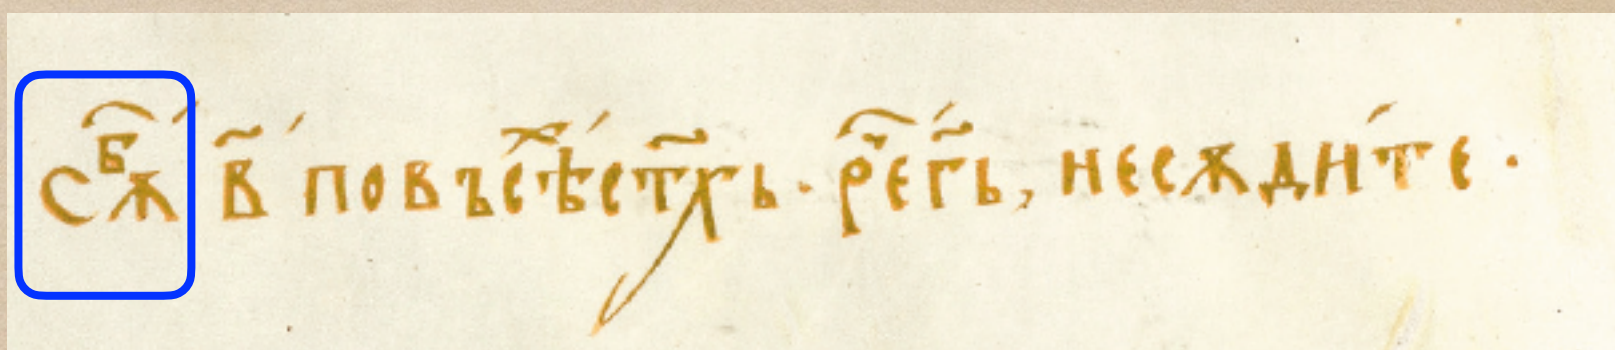 Сⷠ҇ѫ в҃ повъсѣⷯст҃хь · рⷱ҇е г҃ь, несѫдите ·